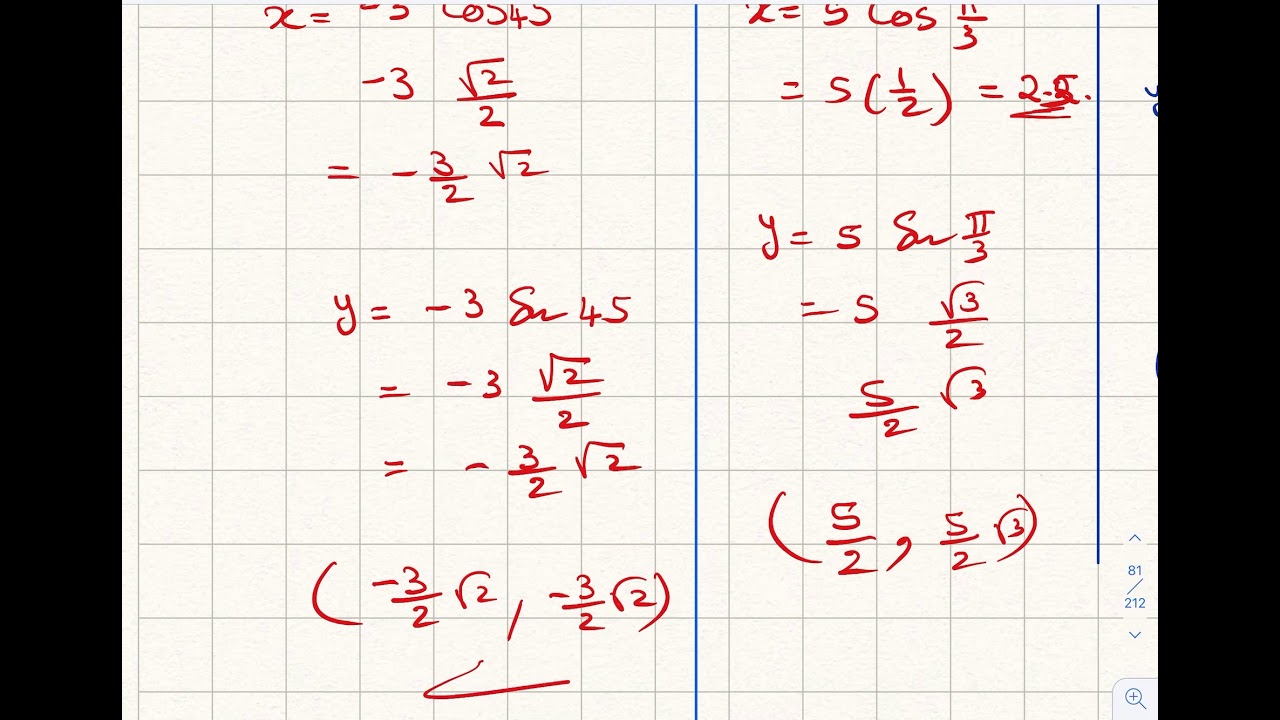 x = -3 cos 45
-3 √2/2
= -3/2 √2
y = -3 Sin 45
= -3 √2/2
= -3/2 √2
(-3/2 √2, -3/2 √2)
x = 5 Cos π/3
= 5(1/2) = 2.5.
y = 5 Sin π/3
= 5 √3/2
5/2 √3
(5/2, 5/2 √3)
81
/
212